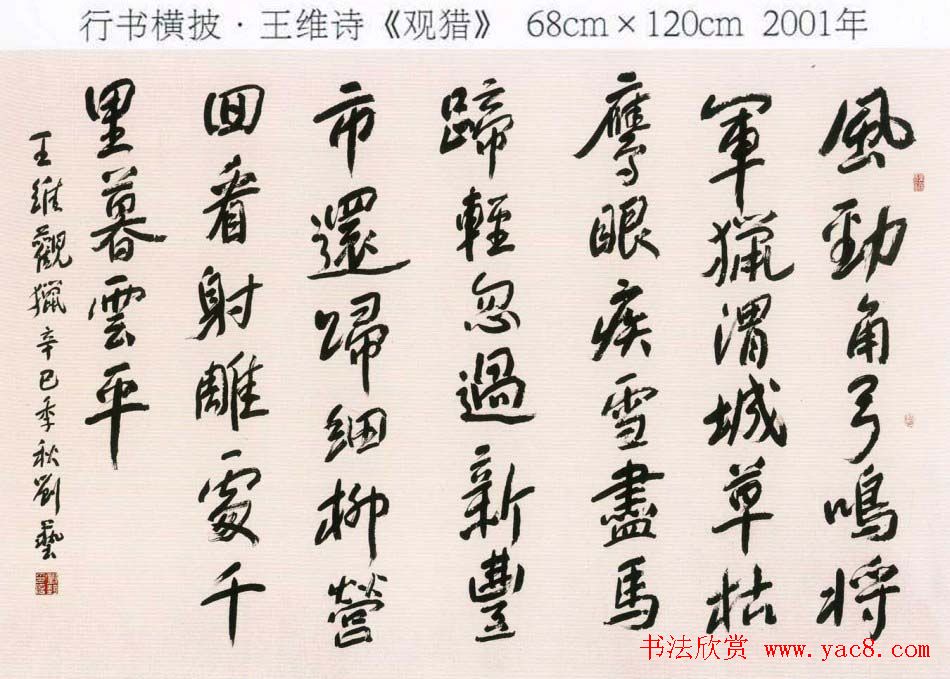 行书横披·王维诗《观猎》 68cm×120cm 2001年
風勁角弓鳴将
軍獵渭城草枯
鹰眼疾雪盡馬
蹄輕忽過新豐
市還歸細柳營
回看射雕處千
里暮雲平
王維觀獵辛巳季秋劉藝
书法欣赏 www.yac8.com